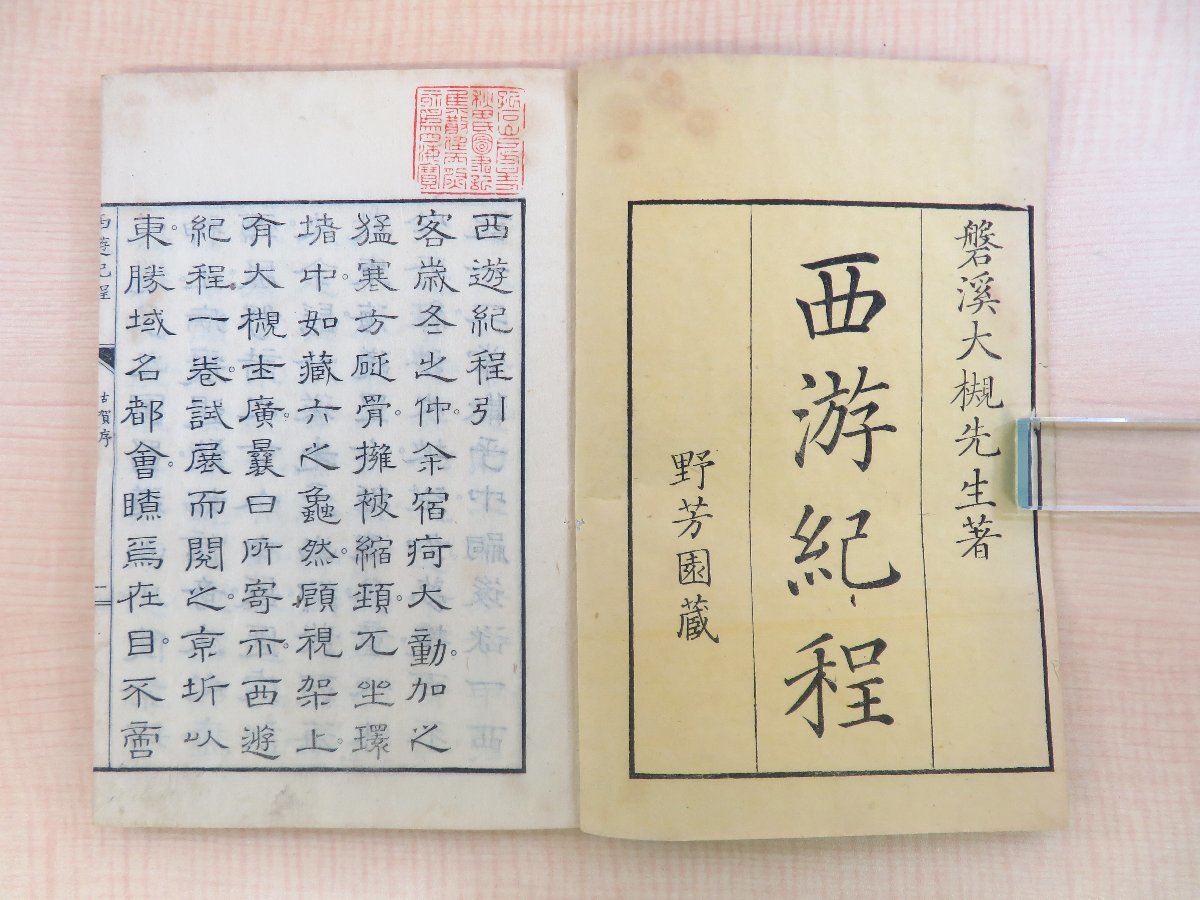 磐溪大槻先生著
西游紀程
野芳園藏
西遊紀程引
客歲冬之仲余宿疴大動。加之
猛寒方砭骨。擁被縮頸兀坐環
堵中。如藏六之龜然。顧視架上。
有大槻士廣曩日所寄示西遊
紀程一卷。試展而閱之。京圻以
東。勝域名都會。瞭焉在目。不啻
西遊紀程
古賀序